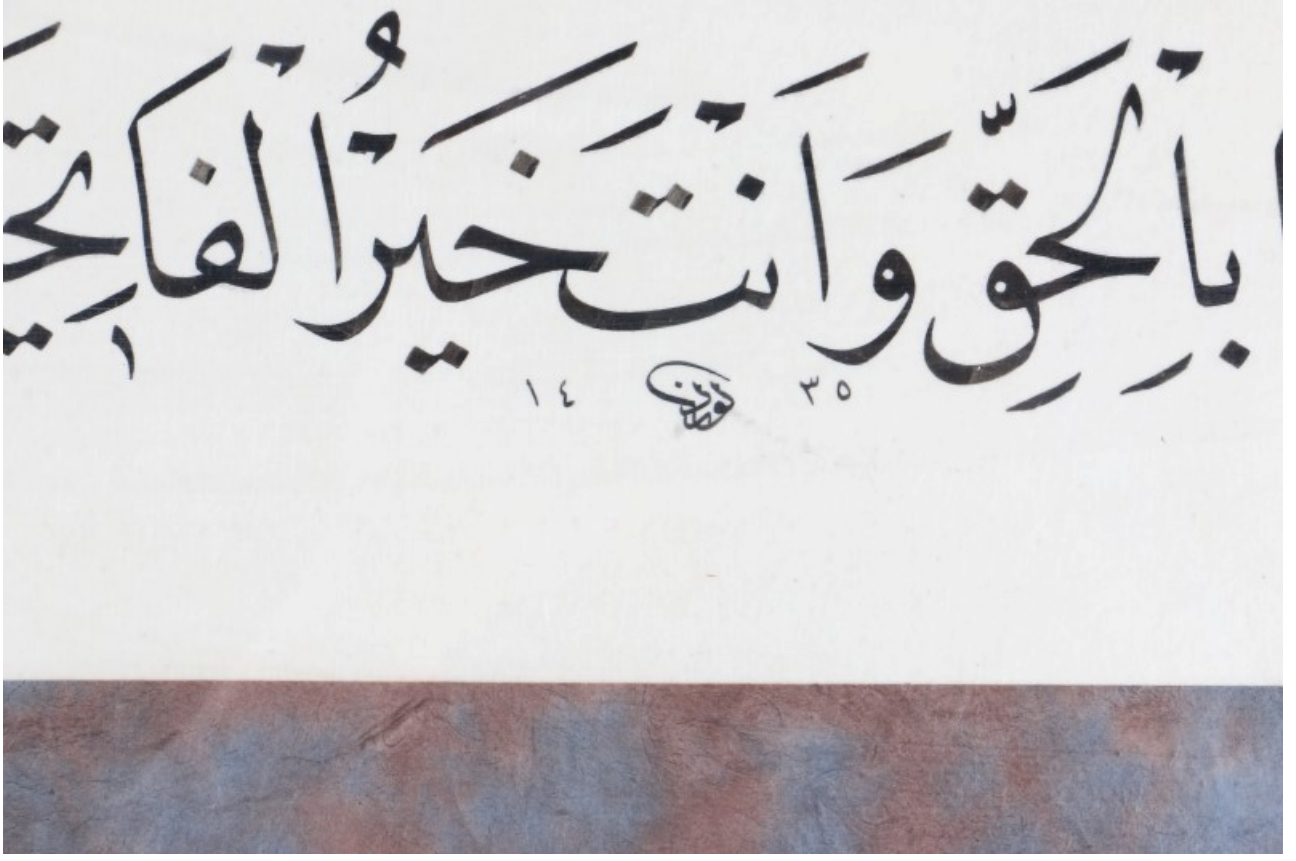 بِاْلحَقِّ وَاَنْتَ خَيْرُ اْلفَاتِحِ
١٤ ٣٥